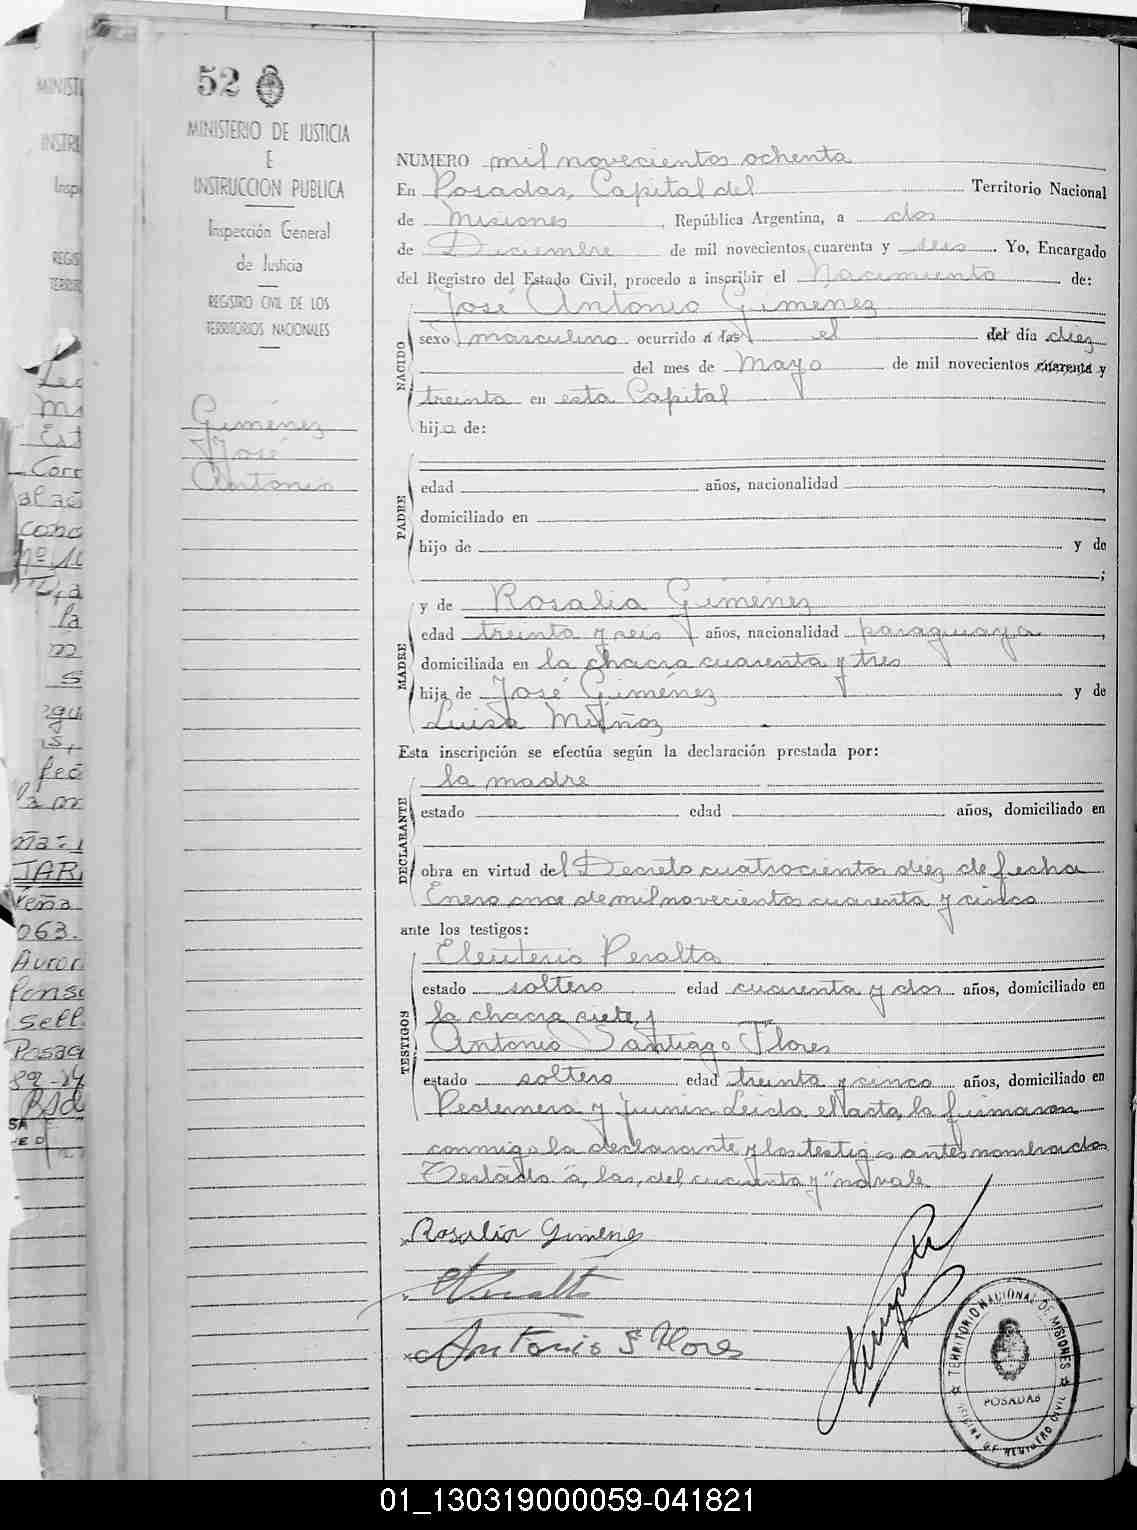 52
MINISTERIO DE JUSTICIA
E
INSTRUCCION PUBLICA
Inspección General
de Justicia
REGISTRO CIVIL DE LOS
TERRITORIOS NACIONALES
Giménez
José
Antonio
NUMERO mil novecientos ochenta
En Posadas, Capital del Territorio Nacional
de Misiones, República Argentina, a dos
de Diciembre de mil novecientos cuarenta y seis. Yo, Encargado
del Registro del Estado Civil, procedo a inscribir el Nacimiento de:
José Antonio Gimenez
NACIDO
sexo masculino ocurrido á las el del día diez
del mes de Mayo de mil novecientos cuarenta y
treinta en esta Capital
hijo de:
PADRE
edad años, nacionalidad ,
domiciliado en
hijo de y de
;
MADRE
y de Rosalia Giménez
edad treinta y seis años, nacionalidad paraguaya,
domiciliada en la chacra cuarenta y tres
hija de José Giménez y de
Luisa Muñoz
Esta inscripción se efectúa según la declaración prestada por:
DECLARANTE
la madre
estado edad años, domiciliado en
obra en virtud del Decreto cuatrocientos diez de fecha
Enero once de mil novecientos cuarenta y cinco
ante los testigos:
TESTIGOS
Eleuterio Peralta
estado soltero edad cuarenta y dos años, domiciliado en
la chacra siete y
Antonio Santiago Flores
estado soltero edad treinta y cinco años, domiciliado en
Pedernera y Junin Leida el acta, la firmaron
conmigo la declarante y los testigos antes nombrados
Testado "á, las, del, cuarenta y" no vale
Rosalia Gimenez
Peralta
Antonio S Flores
TERRITORIO NACIONAL DE MISIONES
POSADAS
OFICINA DE REGISTRO CIVIL
01_130319000059-041821